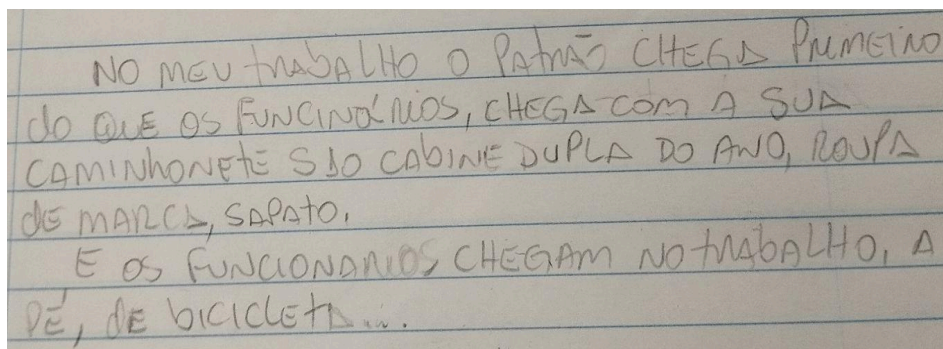 NO MEU tRABALHO O PAtRÃO CHEGA PRIMEIRO
do QUE OS FUNCINÁRIOS, CHEGA COM A SUA
CAMINhONEtE S10 CAbINE DUPLA DO ANO, ROUPA
dE MARCA, SAPAtO.
E OS FUNCIONARIOS CHEGAM NO tRAbALHO, A
PÉ, dE bICICLEtA...